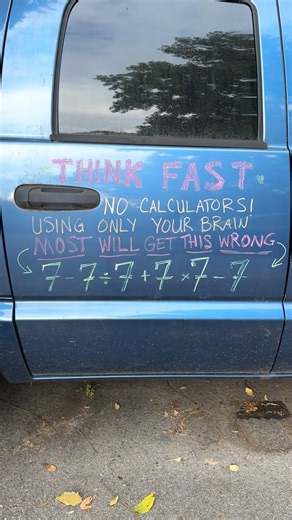 THINK FAST
NO CALCULATORS!
USING ONLY YOUR BRAIN
MOST WILL GET THIS WRONG
7-7÷7+7×7-7